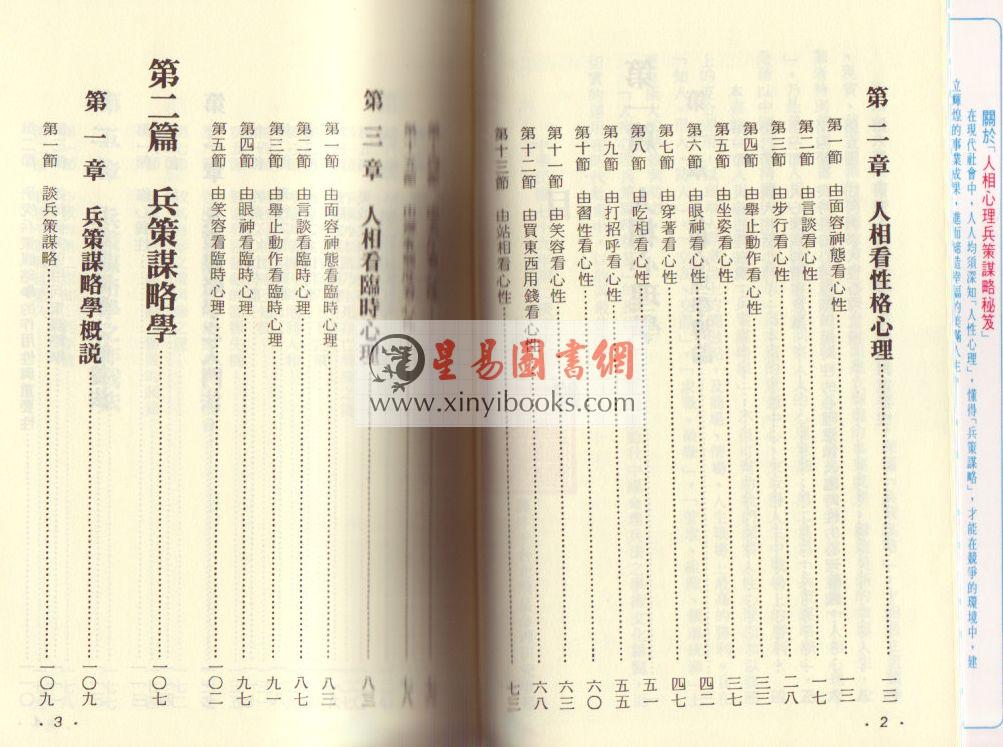 關於「人相心理兵策謀略秘笈」
在現代社會中，人人均須深知「人性心理」，懂得「兵策謀略」，才能在競爭的環境中，建
立輝煌的事業成果，進而締造幸福的美滿人生。
第二章 人相看性格心理……一三
第一節 由面容神態看心性……一三
第二節 由言談看心性……一七
第三節 由步行看心性……二八
第四節 由舉止動作看心性……三三
第五節 由坐姿看心性……三七
第六節 由眼神看心性……四二
第七節 由穿著看心性……四七
第八節 由吃相看心性……五一
第九節 由打招呼看心性……五五
第十節 由習性看心性……六〇
第十一節 由笑容看心性……六三
第十二節 由買東西用錢看心性……六八
第十三節 由站相看心性……七三
·2·
第三章 人相看臨時心理……八三
第一節 由面容神態看臨時心理……八三
第二節 由言談看臨時心理……八七
第三節 由舉止動作看臨時心理……九一
第四節 由眼神看臨時心理……九七
第五節 由笑容看臨時心理……一〇二
第二篇 兵策謀略學……一〇七
第一章 兵策謀略學概説……一〇九
第一節 談兵策謀略……一〇九
·3·
星易圖書網
www.xinyibooks.com